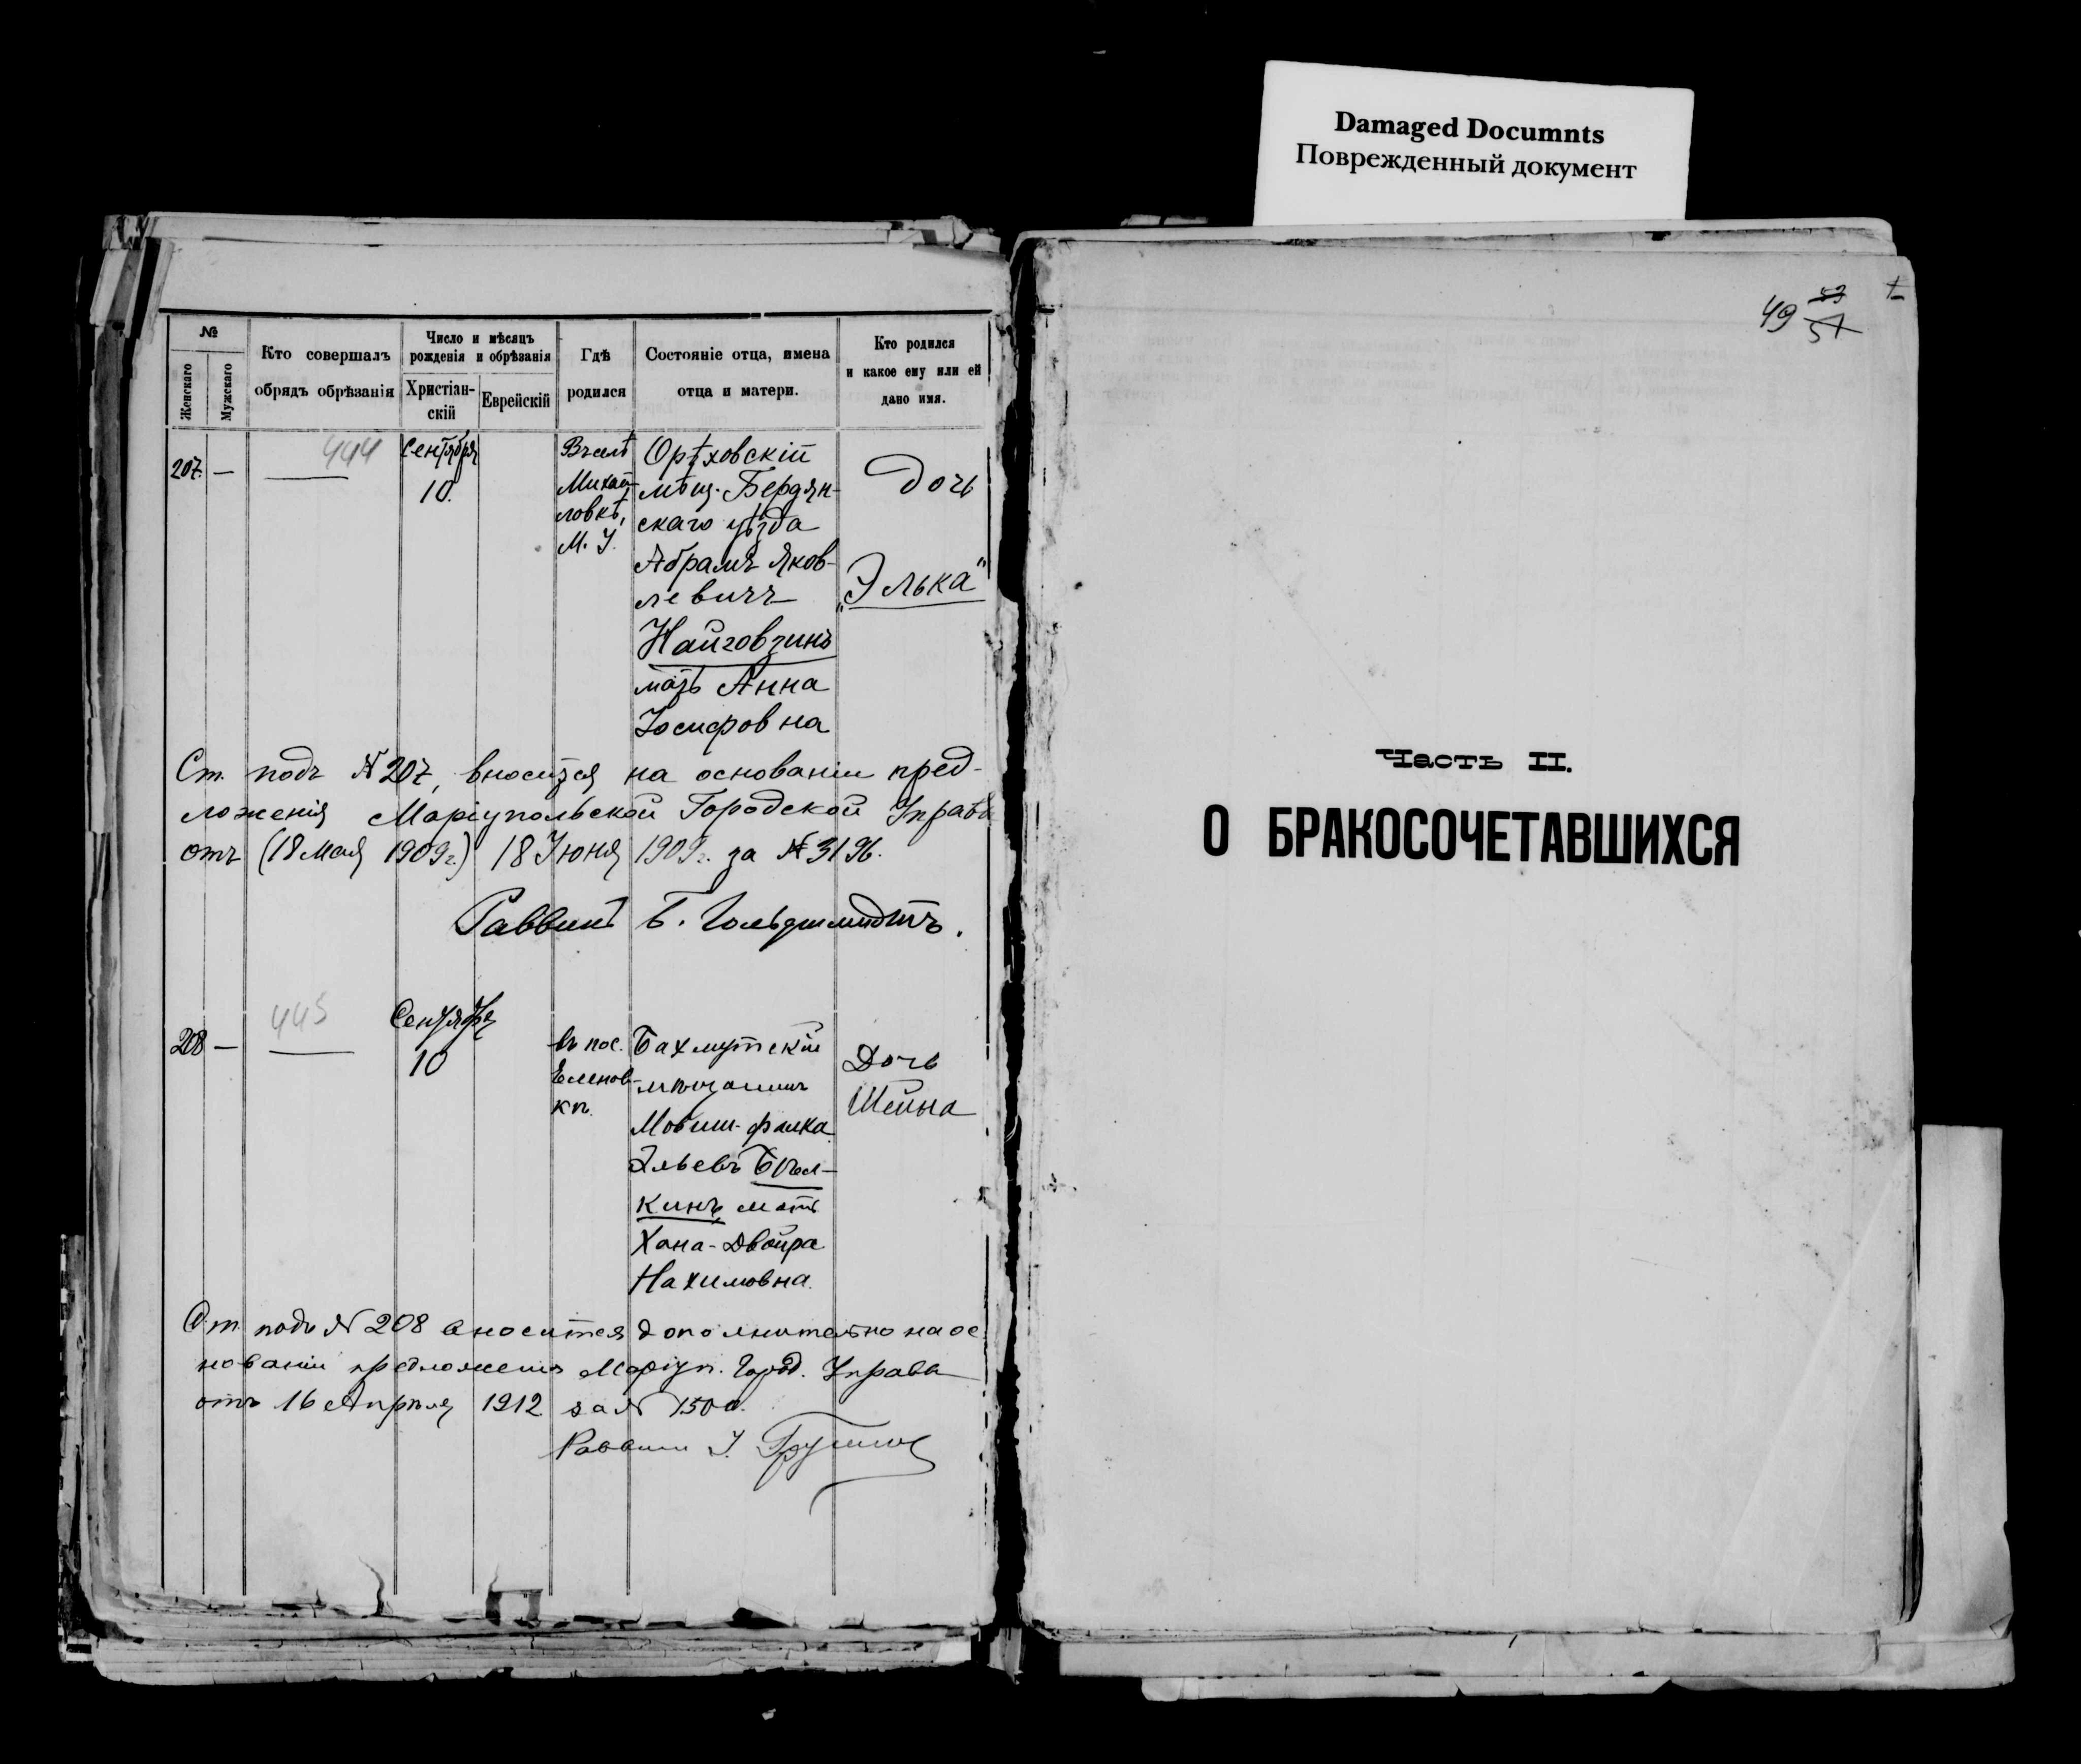 Damaged Documnts
Поврежденный документ
№
Женскаго
Мужскаго
Кто совершалъ
обрядъ обрѣзанія
Число и мѣсяцъ
рожденія и обрѣзанія
Христіан-
скій
Еврейскій
Гдѣ
родился
Состояніе отца, имена
отца и матери.
Кто родился
и какое ему или ей
дано имя.
207. —
444
Сентября
10.
Въ селѣ
Михай-
ловкѣ,
М. У.
Орѣховскій
мѣщ. Бердян-
скаго уѣзда
Абрамъ Яков-
левичъ
Найговзинъ
мать Анна
Іосифовна
Дочь
„Элька"
Ст. подъ № 207, вносится на основаніи пред-
ложенія Маріупольской Городской Управы
отъ (18 Мая 1909 г.) 18 Іюня 1909 г. за № 3196.
Раввинъ Б. Гольдшмидтъ.
208 —
445
Сентября
10
въ пос.
Еленов-
кѣ.
Бахмутскій
мѣщанинъ
Мовша-Файка
Эльевъ Бѣл-
кинъ мать
Хана-Двойра
Нахимовна.
Дочь
Шейна
Ст. подъ № 208 вносится дополнительно на ос
нованіи предложенія Маріуп. Город. Управы
отъ 16 Апрѣля 1912 за №
Раввинъ
49
53
57
Часть II.
О БРАКОСОЧЕТАВШИХСЯ